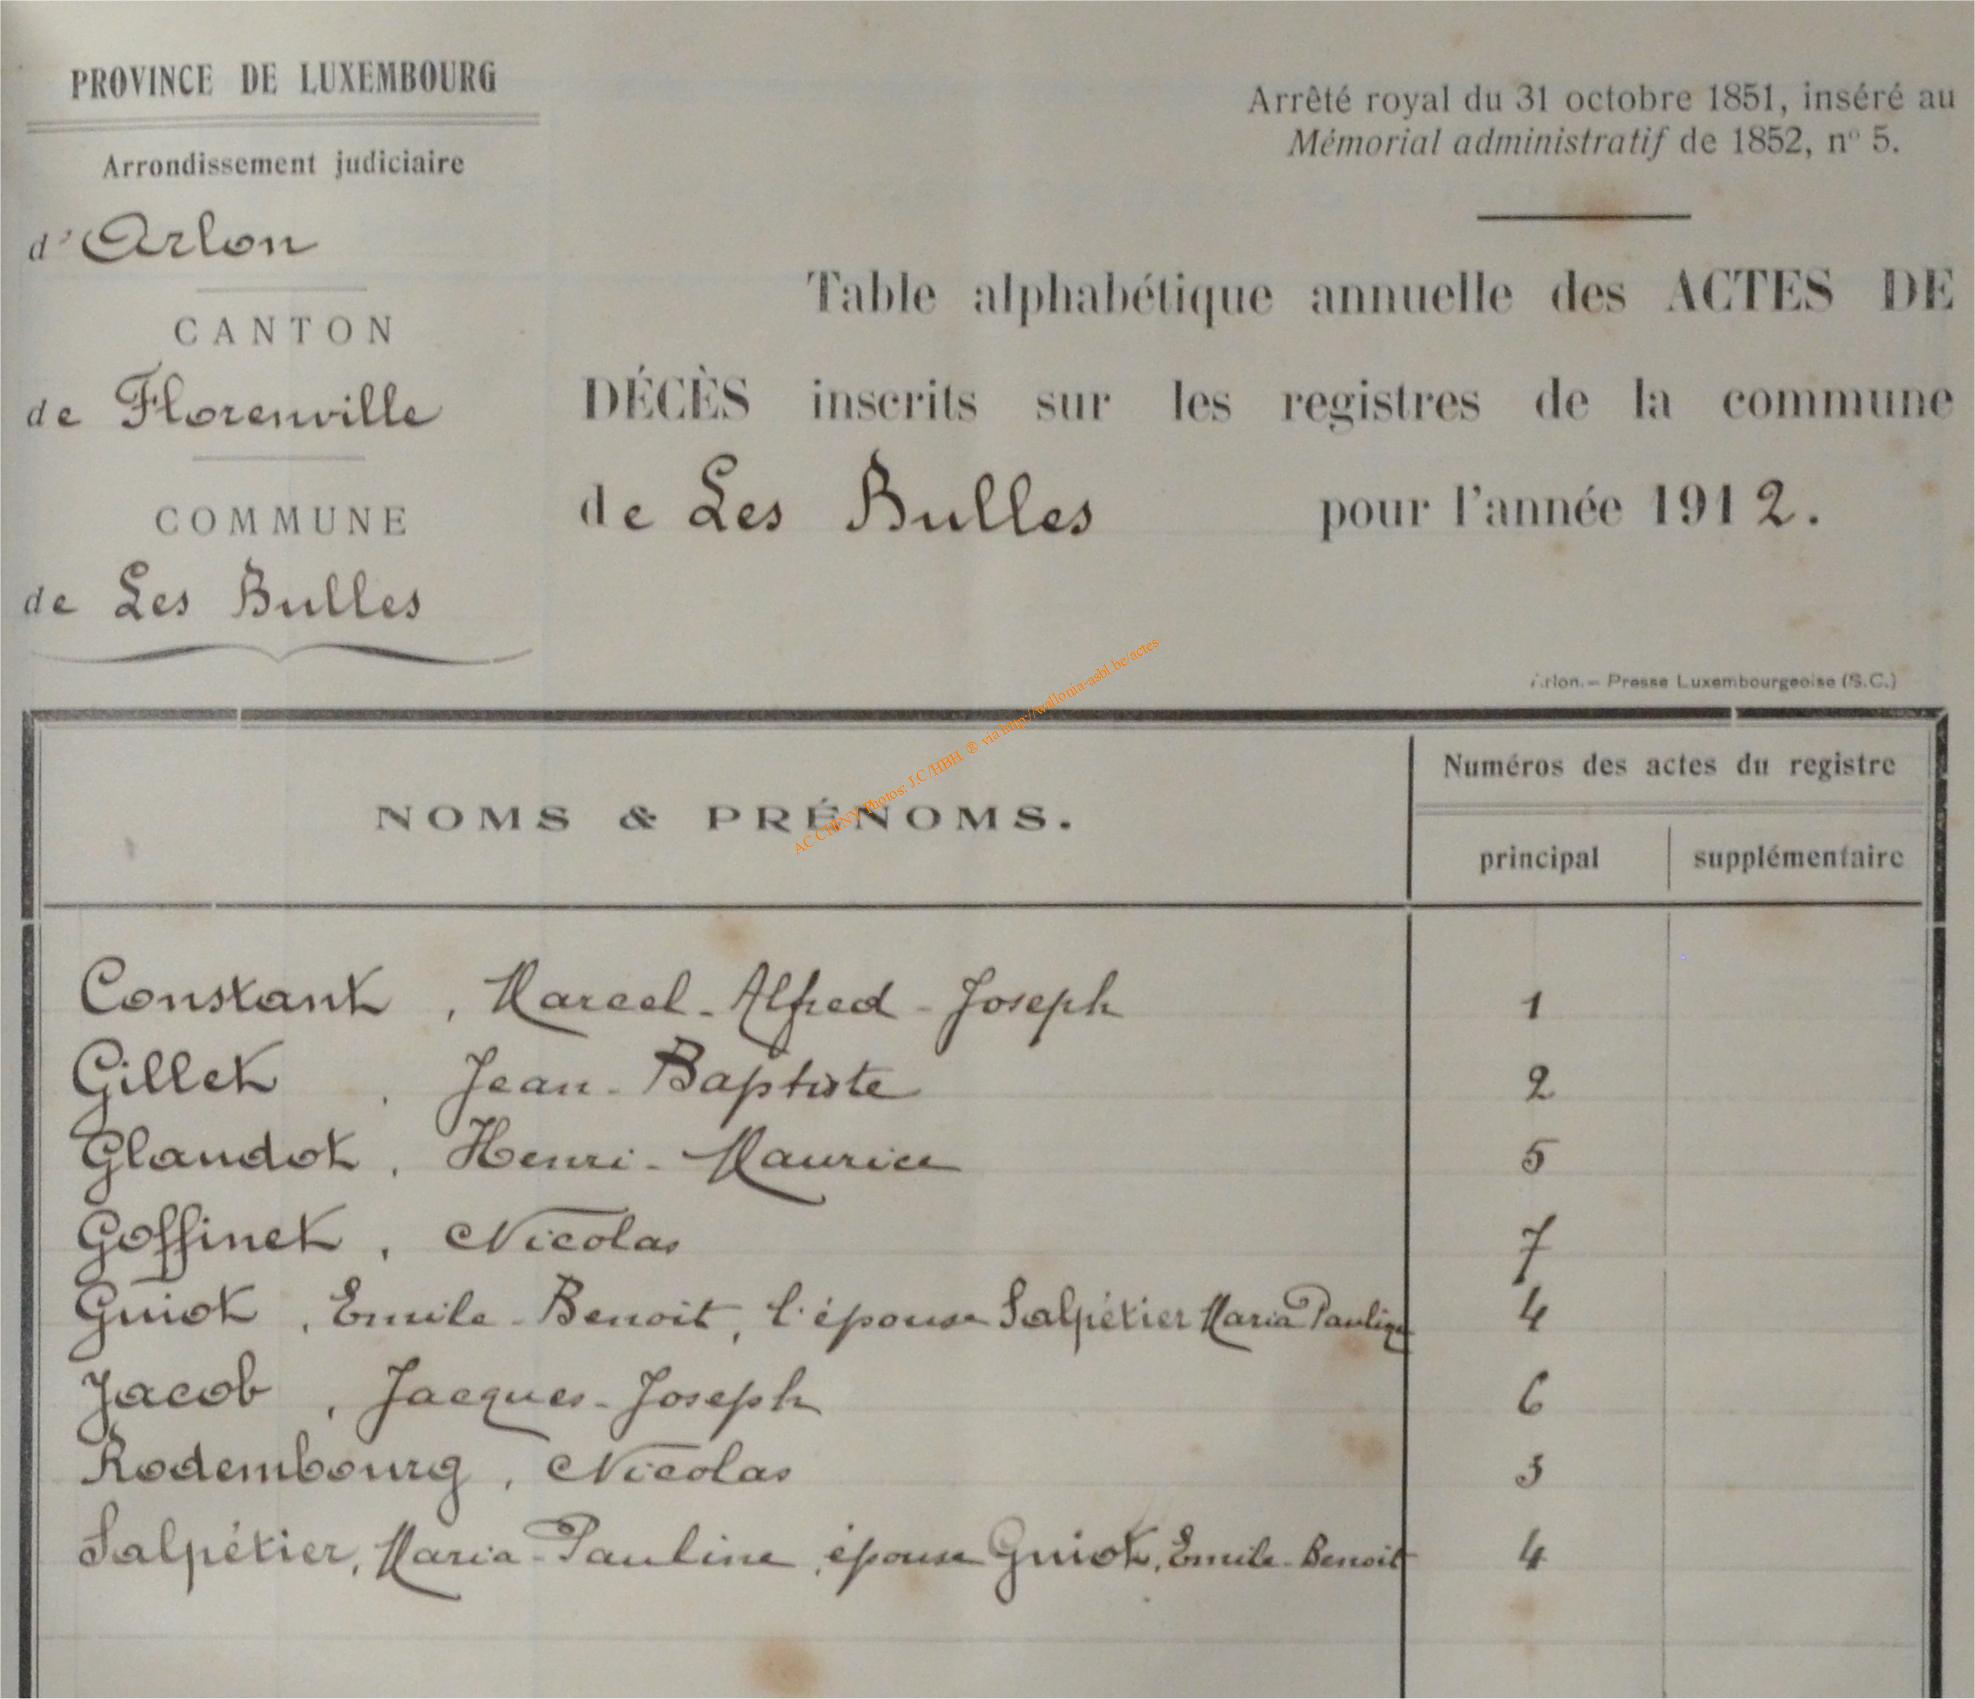 PROVINCE DE LUXEMBOURG
Arrondissement judiciaire
d'Arlon
CANTON
de Florenville
COMMUNE
de Les Bulles
Arrêté royal du 31 octobre 1851, inséré au
Mémorial administratif de 1852, n° 5.
Table alphabétique annuelle des ACTES DE
DÉCÈS inscrits sur les registres de la commune
de Les Bulles pour l'année 1912.
Arlon. – Presse Luxembourgeoise (S.C.)
NOMS & PRÉNOMS.
Numéros des actes du registre
principal supplémentaire
AC CHINY Photos: J.C/HBH ® via http://wallonia-asbl.be/actes
Constant, Marcel-Alfred-Joseph 1
Gillet, Jean-Baptiste 2
Glaudot, Henri-Maurice 5
Goffinet, Nicolas 7
Guiot, Emile-Benoit, l'épouse Salpétier Maria Pauline 4
Jacob, Jacques-Joseph 6
Rodembourg, Nicolas 3
Salpétier, Maria-Pauline, épouse Guiot, Emile-Benoit 4